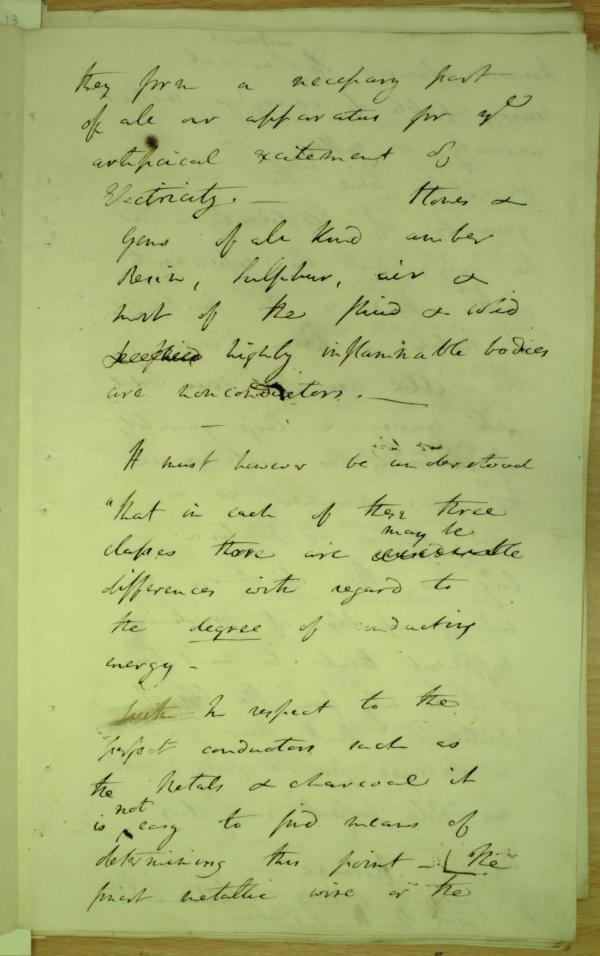 13
they form a necessary part
of all our apparatus for ye
artificial excitement of
Electricity. — Stones &
Gems of all kind amber
Resin, Sulphur, air &
most of the fluid & solid
highly inflammable bodies
are nonconductors. —
It must however be understood
"that in each of these three
may be
classes there are considerable
differences with regard to
the degree of conducting
energy -
With In respect to the
perfect conductors such as
the Metals & charcoal it
not
is easy to find means of
determining this point - [The
finest metallic wire or the